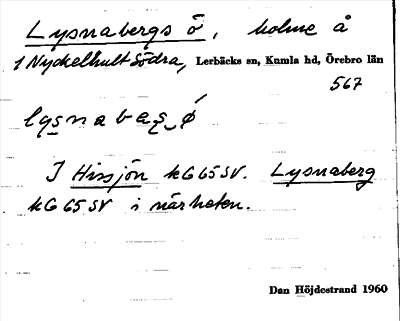 Lysnabergs ö, holme å
1 Nyckelhult Södra, Lerbäcks sn, Kumla hd, Örebro län
567
lysnabas ǿ
I Hissjön kG65SV. Lysnaberg
kG65SV i närheten.
Dan Höjdestrand 1960